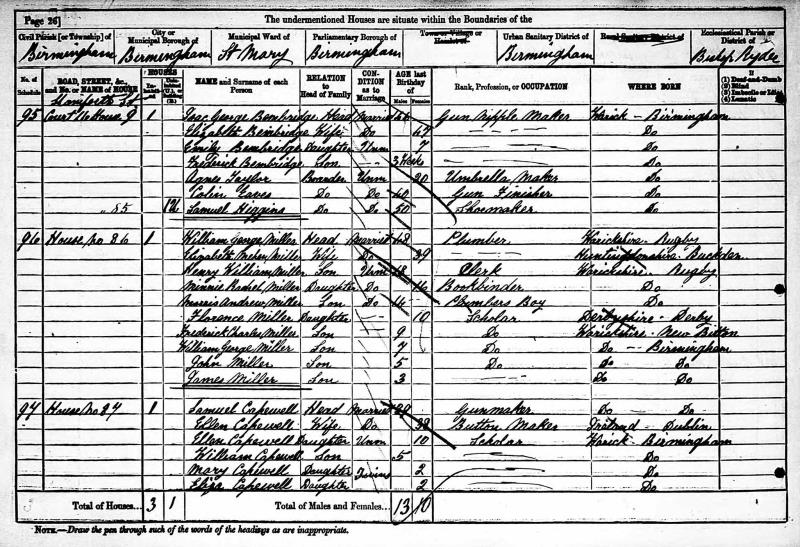 Page 26]
The undermentioned Houses are situate within the Boundaries of the
Civil Parish [or Township] of City or Municipal Borough of Municipal Ward of Parliamentary Borough of Town or Village or Hamlet of Urban Sanitary District of Rural Sanitary District of Ecclesiastical Parish or District of
Birmingham Birmingham St Mary Birmingham Birmingham Bishp Ryder
No. of Schedule ROAD, STREET, &c., and No. or NAME of HOUSE HOUSES Inhabited Uninhabited (U.), or Building (B.) NAME and Surname of each Person RELATION to Head of Family CONDITION as to Marriage AGE last Birthday of Males Females Rank, Profession, or OCCUPATION WHERE BORN If (1) Deaf-and-Dumb (2) Blind (3) Imbecile or Idiot (4) Lunatic
95 Court 16 House 9 1 Isac George Bembridge Head Married Gun Nipple Maker Warick - Birmingham
Elizabeth Bembridge Wife Do 67 Do
Emily Bembridge Daughter Unm 7 Do
Frederick Bembridge Son 3 Weeks Do
Agnes Taylor Boarder Unm 20 Umbrella Maker Do
Colin Eaves Do Do 60 Gun Finisher Do
" 85 Samuel Higgins Do Do 50 Shoemaker Do
96 House No 86 1 William George Miller Head Married 48 Plumber Warickshire Rugby
Elizabeth Miller Wife Do 39 Huntingdonshire Buckden
Henry William Miller Son Unm 18 Clerk Warickshire Rugby
Minnie Miller Daughter Do 16 Bookbinder Do
Morris Andrew Miller Son Do 14 Plumbers Boy Do
Florence Miller Daughter 10 Scholar Derbyshire - Derby
Frederick Charles Miller Son 9 Do Warickshire - New Bilton
William George Miller Son 7 Do Do - Birmingham
John Miller Son 5 Do Do Do
James Miller Son 3 Do Do
97 House No 87 1 Samuel Capewell Head Married 39 Gunmaker Do - Do
Ellen Capewell Wife Do 38 Button Maker Ireland - Dublin
Ellen Capewell Daughter Unm 10 Scholar Warick - Birmingham
William Capewell Son 5 Do
Mary Capewell Daughter Twins 2 Do
Eliza Capewell Daughter 2 Do
Total of Houses... 3 1 Total of Males and Females... 13 10
NOTE.—Draw the pen through such of the words of the headings as are inappropriate.